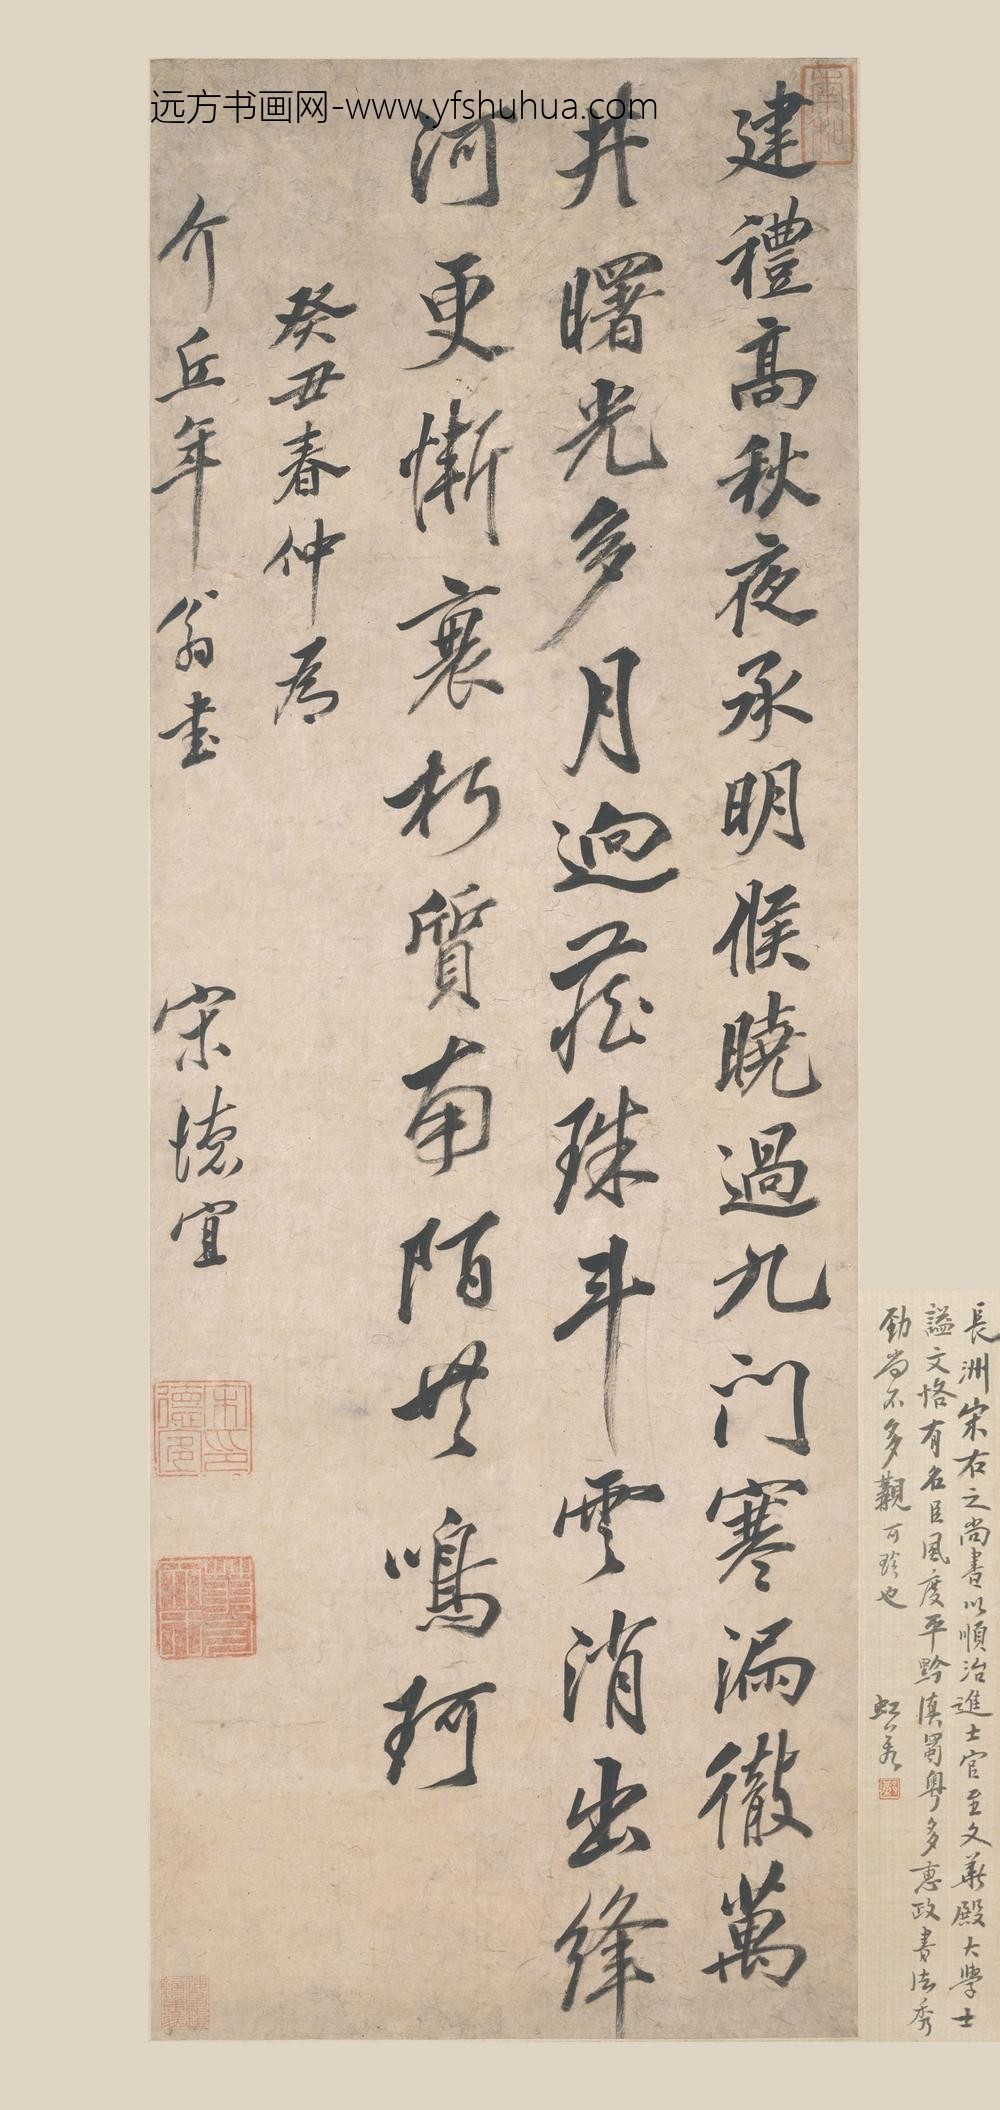 远方书画网-www.yfshuhua.com
建禮高秋夜承明候曉過九门寒漏徹萬
井曙光多月迥蔵珠斗雲消出绛
河更慚衰朽質南陌共鳴珂
癸丑春仲為
介丘年翁書
宋德宜
長洲宋右之尚書以順治進士官至文華殿大學士
謚文恪有名臣風度平黔滇蜀粤多惠政書法秀
勁尚不多觀可珍也
虹若